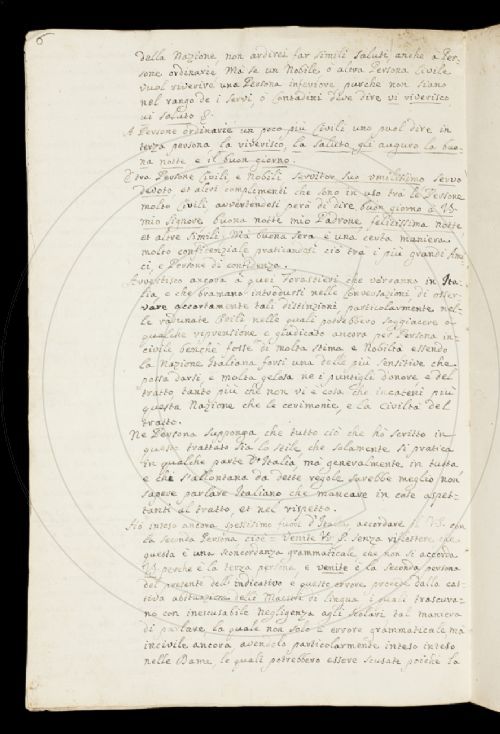 6
della Nazione non ardirei far simili saluti anche a Per-
sone ordinarie. Ma se un Nobile, o altra Persona Civile
vuol riverire una Persona inferiore purche non siano
nel rango de i Servi, o Contadini deve dire vi riverisco
vi saluto &.
A Persone ordinarie un poco più Civili uno puol dire in
terza persona la riverisco, la saluto, gli auguro la buo-
na notte e il buon giorno.
Tra Persone Civili, e Nobili servitor suo umilissimo servo
devoto et altri complimenti che sono in uso tra le Persone
molto Civili avvertendosi però di dire buon giorno a VS.
mio Signore buona notte mio Padrone felicissima notte
et altre simili. Ma buona sera è una certa maniera
molto confidenziale praticandosi ciò tra i più grandi Ami
ci e Persone di confidenza.
Avvertisco ancora a quei Forastieri che verranno in Ita-
lia, e che bramano introdursi nelle Conversazioni di osser-
vare accortamente tali distinzioni, particolarmente nel-
le radunate Civili nelle quali potrebbero soggiacere a
qualche riprensione, e giudicato ancora per Persona in-
civile benche fosse di molta stima e Nobiltà essendo
la Nazione Italiana forsi una delle più sensitive che
possa darsi, e molto gelosa ne i puntigli d'onore, e del
tratto, tanto più che non vi è cosa che incateni più
questa Nazione che le cerimonie, e la Civiltà del
tratto.
Ne Persona supponga che tutto ciò che hò scritto in
questo trattato sia lo stile che solamente si pratica
in qualche parte d'Italia ma generalmente in tutta
e chi s'allontana da dette regole sarebbe meglio non
sapere parlare Italiano che mancare in cose aspet-
tanti al tratto, et nel rispetto.
Hò inteso ancora spessissimo fuori d'Italia accordare il VS. con
la seconda Persona cioè = venite VS.? senza riflettere che
questa è una sconcordanza grammaticale che non si accorda
VS. perche è la terza persona e venite è la seconda persona
del presente dell'indicativo e questo errore procede dalla cat-
tiva abituazione delli Maestri di lingua i quali trascura-
no con inescusabile negligenza agli scolari tal maniera
di parlare, la quale non solo è errore grammaticale ma
incivile ancora avendolo particolarmente inteso
nelle Dame, le quali potrebbero essere scusate poiche la